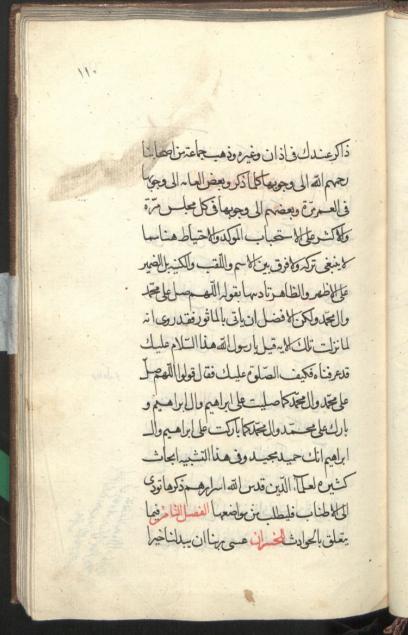 ١١٠
ذاكر عندك فى اذان وغيره وذهب جماعة من اصحابنا
رحمهم الله الى وجوبها كلما ذكر وبعض العامه الى وجوبها
فى العمر مرّة وبعضهم الى وجوبها فى كل مجلس مرّة
والاكثر على الاستحباب الموكد والاحتياط هنا مما
لا ينبغى تركه ولا فرق بين الاسم واللقب والكنية بل الضمير
على الاظهر والظاهر تاديها بقوله اللّهم صل على محمّد
وال محمّد ولكن الافضل ان ياتى بالماثور فقد روى انه
لما نزلت تلك الايه قيل يا رسول الله هذا السّلام عليك
قد عرفناه فكيف الصّلوة عليك فقال قولوا اللّهم صلّ
على محمّد وال محمّد كما صليت على ابراهيم وال ابراهيم و
بارك على محمّد وال محمّد كما باركت على ابراهيم وال
ابراهيم انك حميد مجيد وفى هذا التشبيه ابحاث
كثيره لعلمآء الدّين قدس الله اسرارهم ذكرها تودى
الى الاطناب فليطلب من مواضعها الفصل الثامن فيما
يتعلق بالحوادث للخسران عسى ربنا ان يبدلنا خيرا